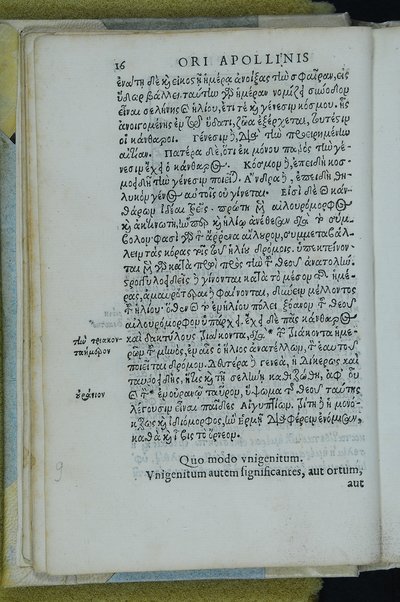 16 ORI APOLLINIS
ἐνάτῃ δὲ καὶ εἰκοστῇ ἡμέρᾳ ἀνοίξας τὴν σφαῖραν, εἰς
ὕδωρ βάλλει. ταύτην γὰρ τὴν ἡμέραν νομίζει σύνοδον
εἶναι σελήνης καὶ ἡλίου, ἔτι τε καὶ γένεσιν κόσμου. ἧς
ἀνοιγομένης ἐν τῷ ὕδατι, ζῶα ἐξέρχεται, τουτέσιν
οἱ κάνθαροι. Γένεσιν δὲ, διὰ τὴν προειρημένην
αἰτίαν. Πατέρα δὲ, ὅτι ἐκ μόνου πατρὸς τὴν γέ-
νεσιν ἔχει ὁ κάνθαρος. Κόσμον δὲ, ἐπειδὴ κοσ-
μοειδῆ τὴν γένεσιν ποιεῖται. Ἄνδρα δὲ, ἐπειδὴ θη-
λυκὸν γένος αὐτοῖς οὐ γίνεται. Εἰσὶ δὲ καὶ καν-
θάρων ἰδέαι τρεῖς. πρώτη μὲν αἰλουρόμορφος
καὶ ἀκτινωτὴ, ἥνπερ καὶ ἡλίῳ ἀνέθεσαν διὰ τὸ σύμ-
βολον. φασὶ γὰρ τὸν ἄρρενα αἴλουρον, συμμεταβάλ-
λειν τὰς κόρας τοῖς τοῦ ἡλίου δρόμοις. ὑπεκτείνον-
ται μὲν γὰρ κατὰ πρωῒ πρὸς τὴν τοῦ θεοῦ ἀνατολήν.
στρογγυλοειδεῖς δὲ γίνονται κατὰ τὸ μέσον τῆς ἡμέ-
ρας, ἀμαυρότεραι δὲ φαίνονται, δύνειν μέλλοντος
τοῦ ἡλίου. ὅθεν καὶ τὸ ἐν ἡλίου πόλει ξόανον τοῦ θεοῦ
αἰλουρόμορφον ὑπάρχει. ἔχει δὲ πᾶς κάνθαρος
τὴν τριακον- καὶ δακτύλους τριάκοντα, διὰ τὴν τριάκοντα ἡμέ-
ταήμερον ρων τοῦ μηνὸς, ἐν αἷς ὁ ἥλιος ἀνατέλλων, τὸν ἑαυτοῦ
ποιεῖται δρόμον. Δευτέρα δὲ γενεὰ, ἡ δίκερως καὶ
ταυροειδὴς, ἥτις καὶ τῇ σελήνῃ καθιερώθη, ἀφ' οὗ
οὐράνιον καὶ τὸν ἐπουράνιον ταῦρον, ὕψωμα τῆς θεοῦ ταύτης
λέγουσιν εἶναι παῖδες Αἰγυπτίων. Τρίτη δὲ ἡ μονό-
κερως καὶ ἰδιόμορφος, ἣν Ἑρμῇ διαφέρειν ἐνόμισαν,
καθὰ καὶ ἶβις τὸ ὄρνεον.
Quo modo vnigenitum.
Vnigenitum autem significantes, aut ortum,
aut
9